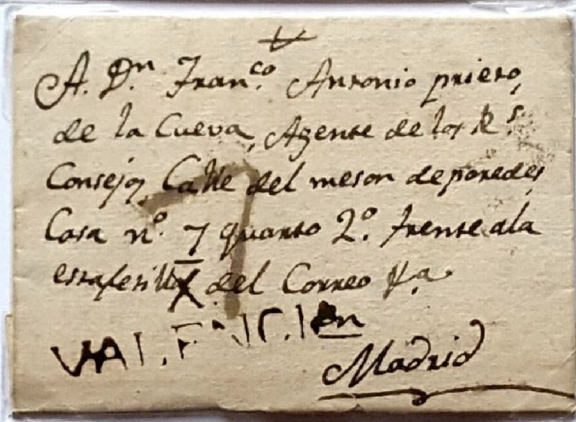 A. Dn. Franco. Antonio prieto,
de la Cueva, Agente de los Rs.
Consejos, Calle del meson de paredes
Casa nº. 7 quarto 2º. frente ala
estafetilla del Correo
VALENCIA
en
Madrid